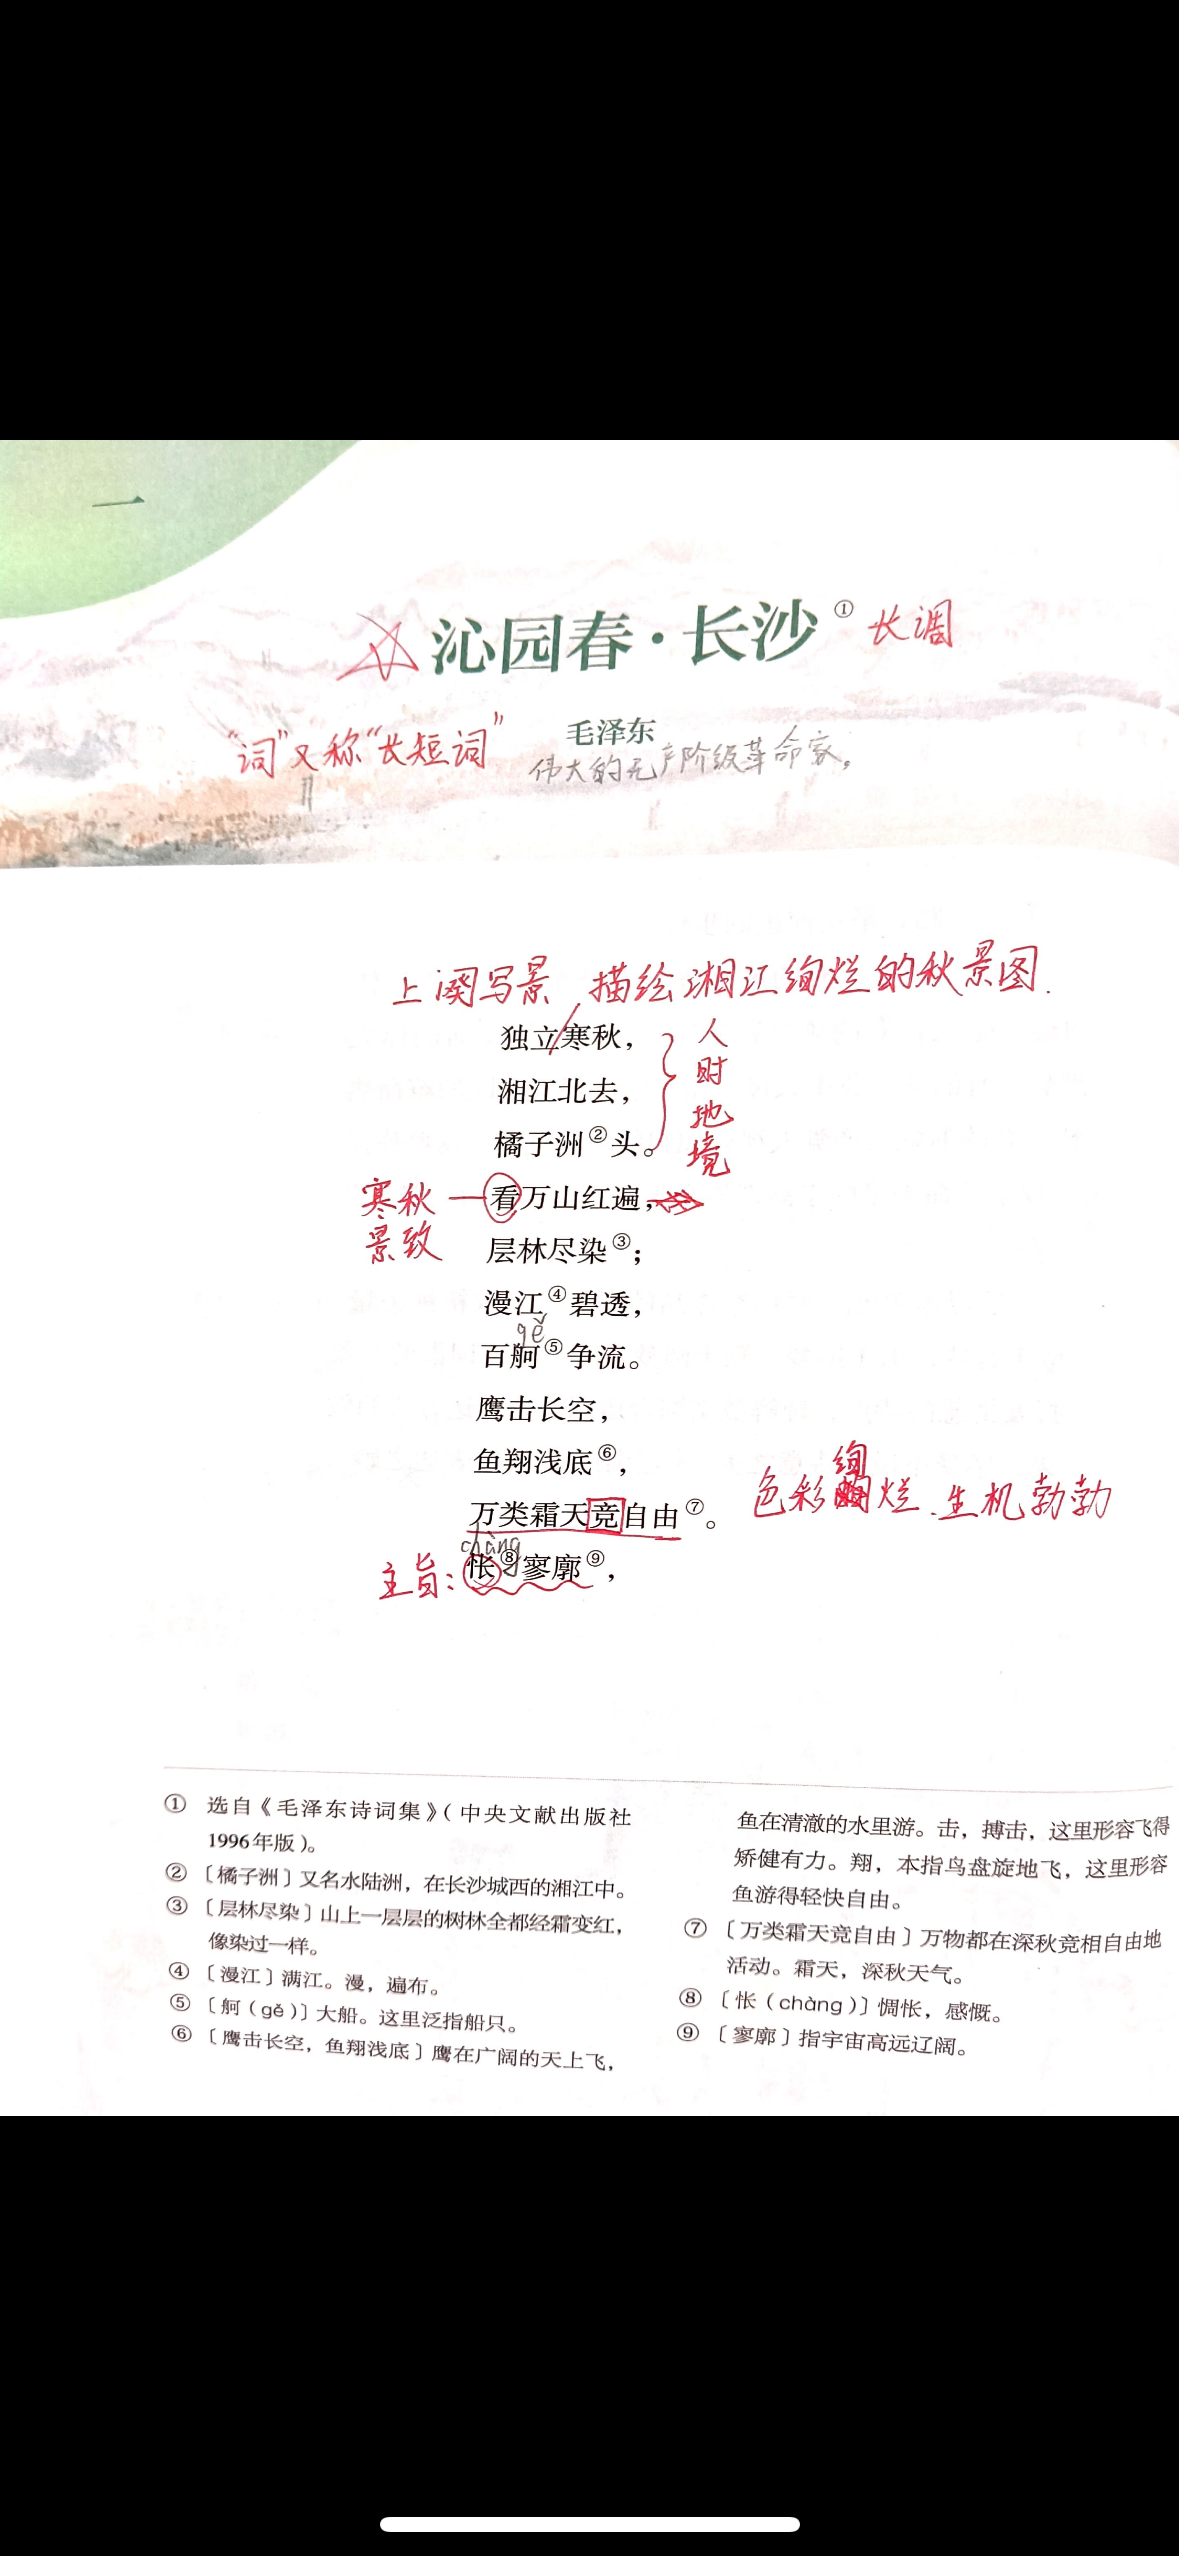 一
沁园春·长沙① 长调
毛泽东
“词”又称“长短词”
伟大的无产阶级革命家,
上阕写景,描绘湘江绚烂的秋景图.
独立寒秋，
湘江北去，
橘子洲②头。
人
时
地
境
寒秋
景致
看万山红遍，
层林尽染③；
漫江④碧透，
gě
百舸⑤争流。
鹰击长空，
鱼翔浅底⑥，
万类霜天竞自由⑦。
色彩绚烂、生机勃勃
chàng
主旨：怅⑧寥廓⑨，
① 选自《毛泽东诗词集》（中央文献出版社
1996年版）。
② 〔橘子洲〕又名水陆洲，在长沙城西的湘江中。
③ 〔层林尽染〕山上一层层的树林全都经霜变红，
像染过一样。
④ 〔漫江〕满江。漫，遍布。
⑤ 〔舸（gě）〕大船。这里泛指船只。
⑥ 〔鹰击长空，鱼翔浅底〕鹰在广阔的天上飞，
鱼在清澈的水里游。击，搏击，这里形容飞得
矫健有力。翔，本指鸟盘旋地飞，这里形容
鱼游得轻快自由。
⑦ 〔万类霜天竞自由〕万物都在深秋竞相自由地
活动。霜天，深秋天气。
⑧ 〔怅（chàng）〕惆怅，感慨。
⑨ 〔寥廓〕指宇宙高远辽阔。